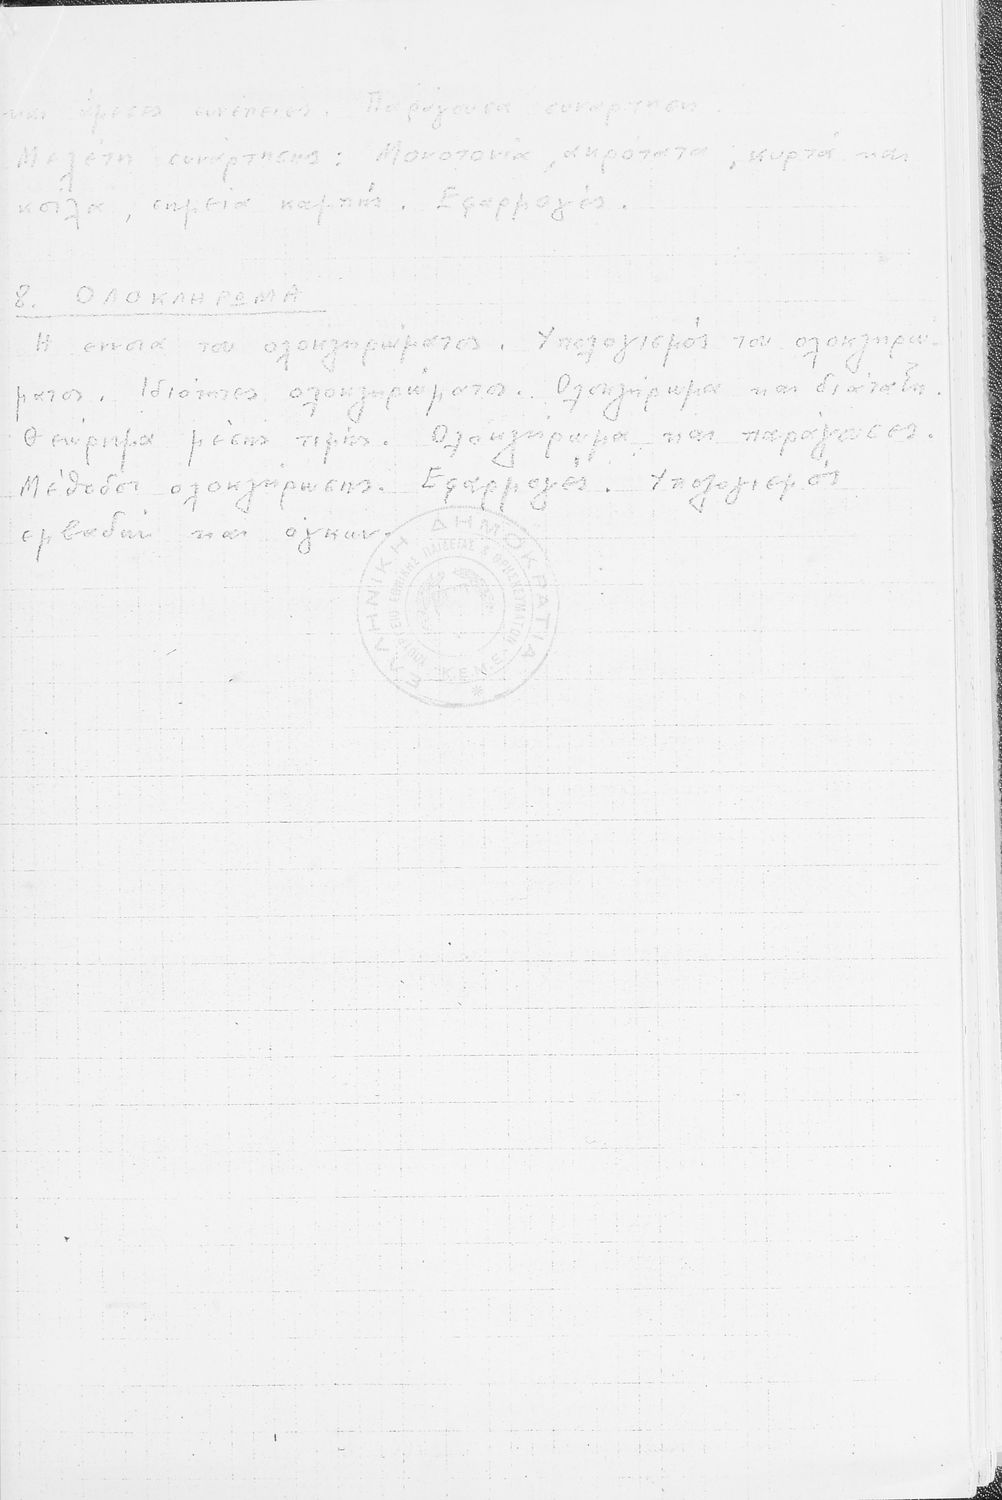 και άμεσες συνέπειες. Παράγουσα συνάρτησης.
Μελέτη συνάρτησης: Μονοτονία, ακρότατα, κυρτά και
κοίλα, σημεία καμπής. Εφαρμογές.
8. ΟΛΟΚΛΗΡΩΜΑ
Η έννοια του ολοκληρώματος. Υπολογισμός του ολοκληρώ-
ματος. Ιδιότητες ολοκληρώματος. Ολοκλήρωμα και διάταξη.
Θεώρημα μέσης τιμής. Ολοκλήρωμα και παράγουσες.
Μέθοδοι ολοκλήρωσης. Εφαρμογές. Υπολογισμός
εμβαδών και όγκων.
ΕΛΛΗΝΙΚΗ ΔΗΜΟΚΡΑΤΙΑ
ΥΠΟΥΡΓΕΙΟ ΕΘΝΙΚΗΣ ΠΑΙΔΕΙΑΣ & ΘΡΗΣΚΕΥΜΑΤΩΝ
Κ.Ε.Μ.Ε.